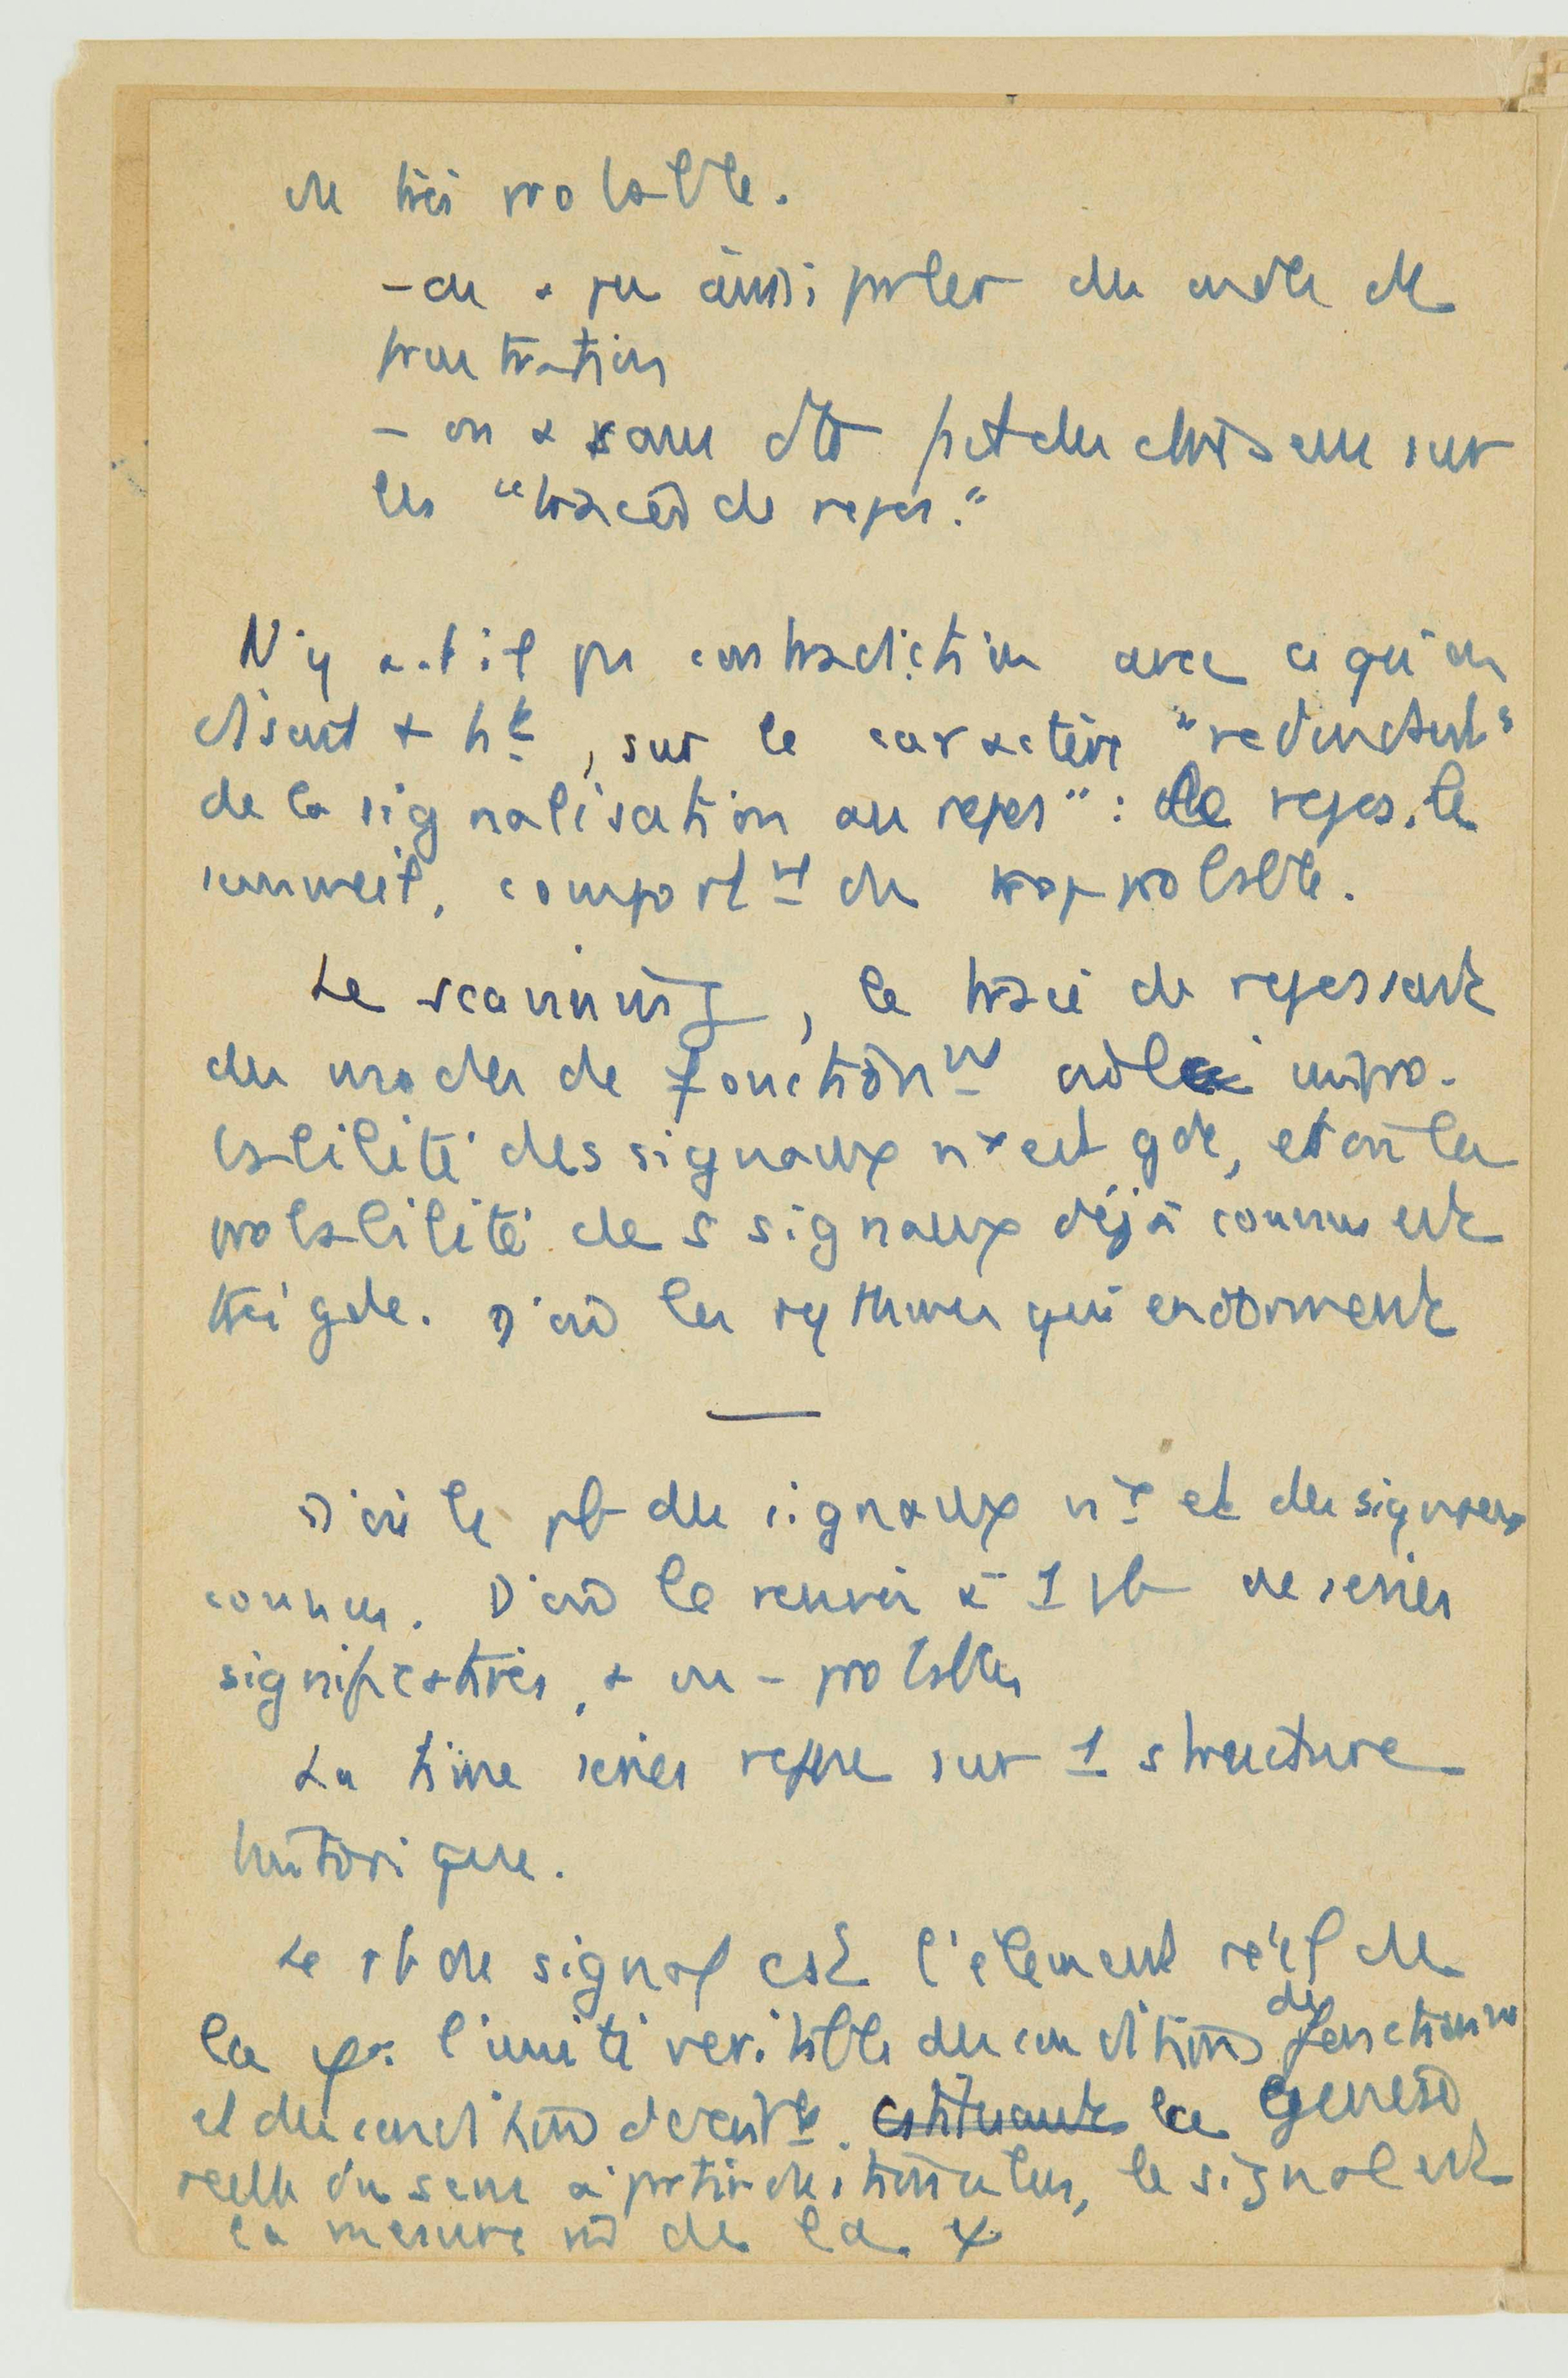 est très probable.
- on a pu ainsi parler des ondes de
frustration
- on a sans doute fait des choses sur
les "tracés de repos."
N'y a-t-il pas contradiction avec ce qu'on
disait + ht, sur le caractère "redondant
de la signalisation au repos" : le repos, le
sommeil, comportnt du trop probable.
Le scanning, le tracé de repos sont
des modes de fonctionnt où l'impro-
babilité des signaux nx est gde, et où la
probabilité des signaux déjà connus est
très gde. D'où les rythmes qui endorment
D'où le pb des signaux nx et des signaux
connus. D'où le renvoi à 1 pb de séries
significatives, + ou - probables
La time series repose sur 1 structure
historique.
Le pb du signal est l'élément réel de
la ψ: l'unité véritable des conditions de fonctionnt
et des conditions la genèse
réelle du sens à partir du stimulus, le signal est
la mesure de la ψ